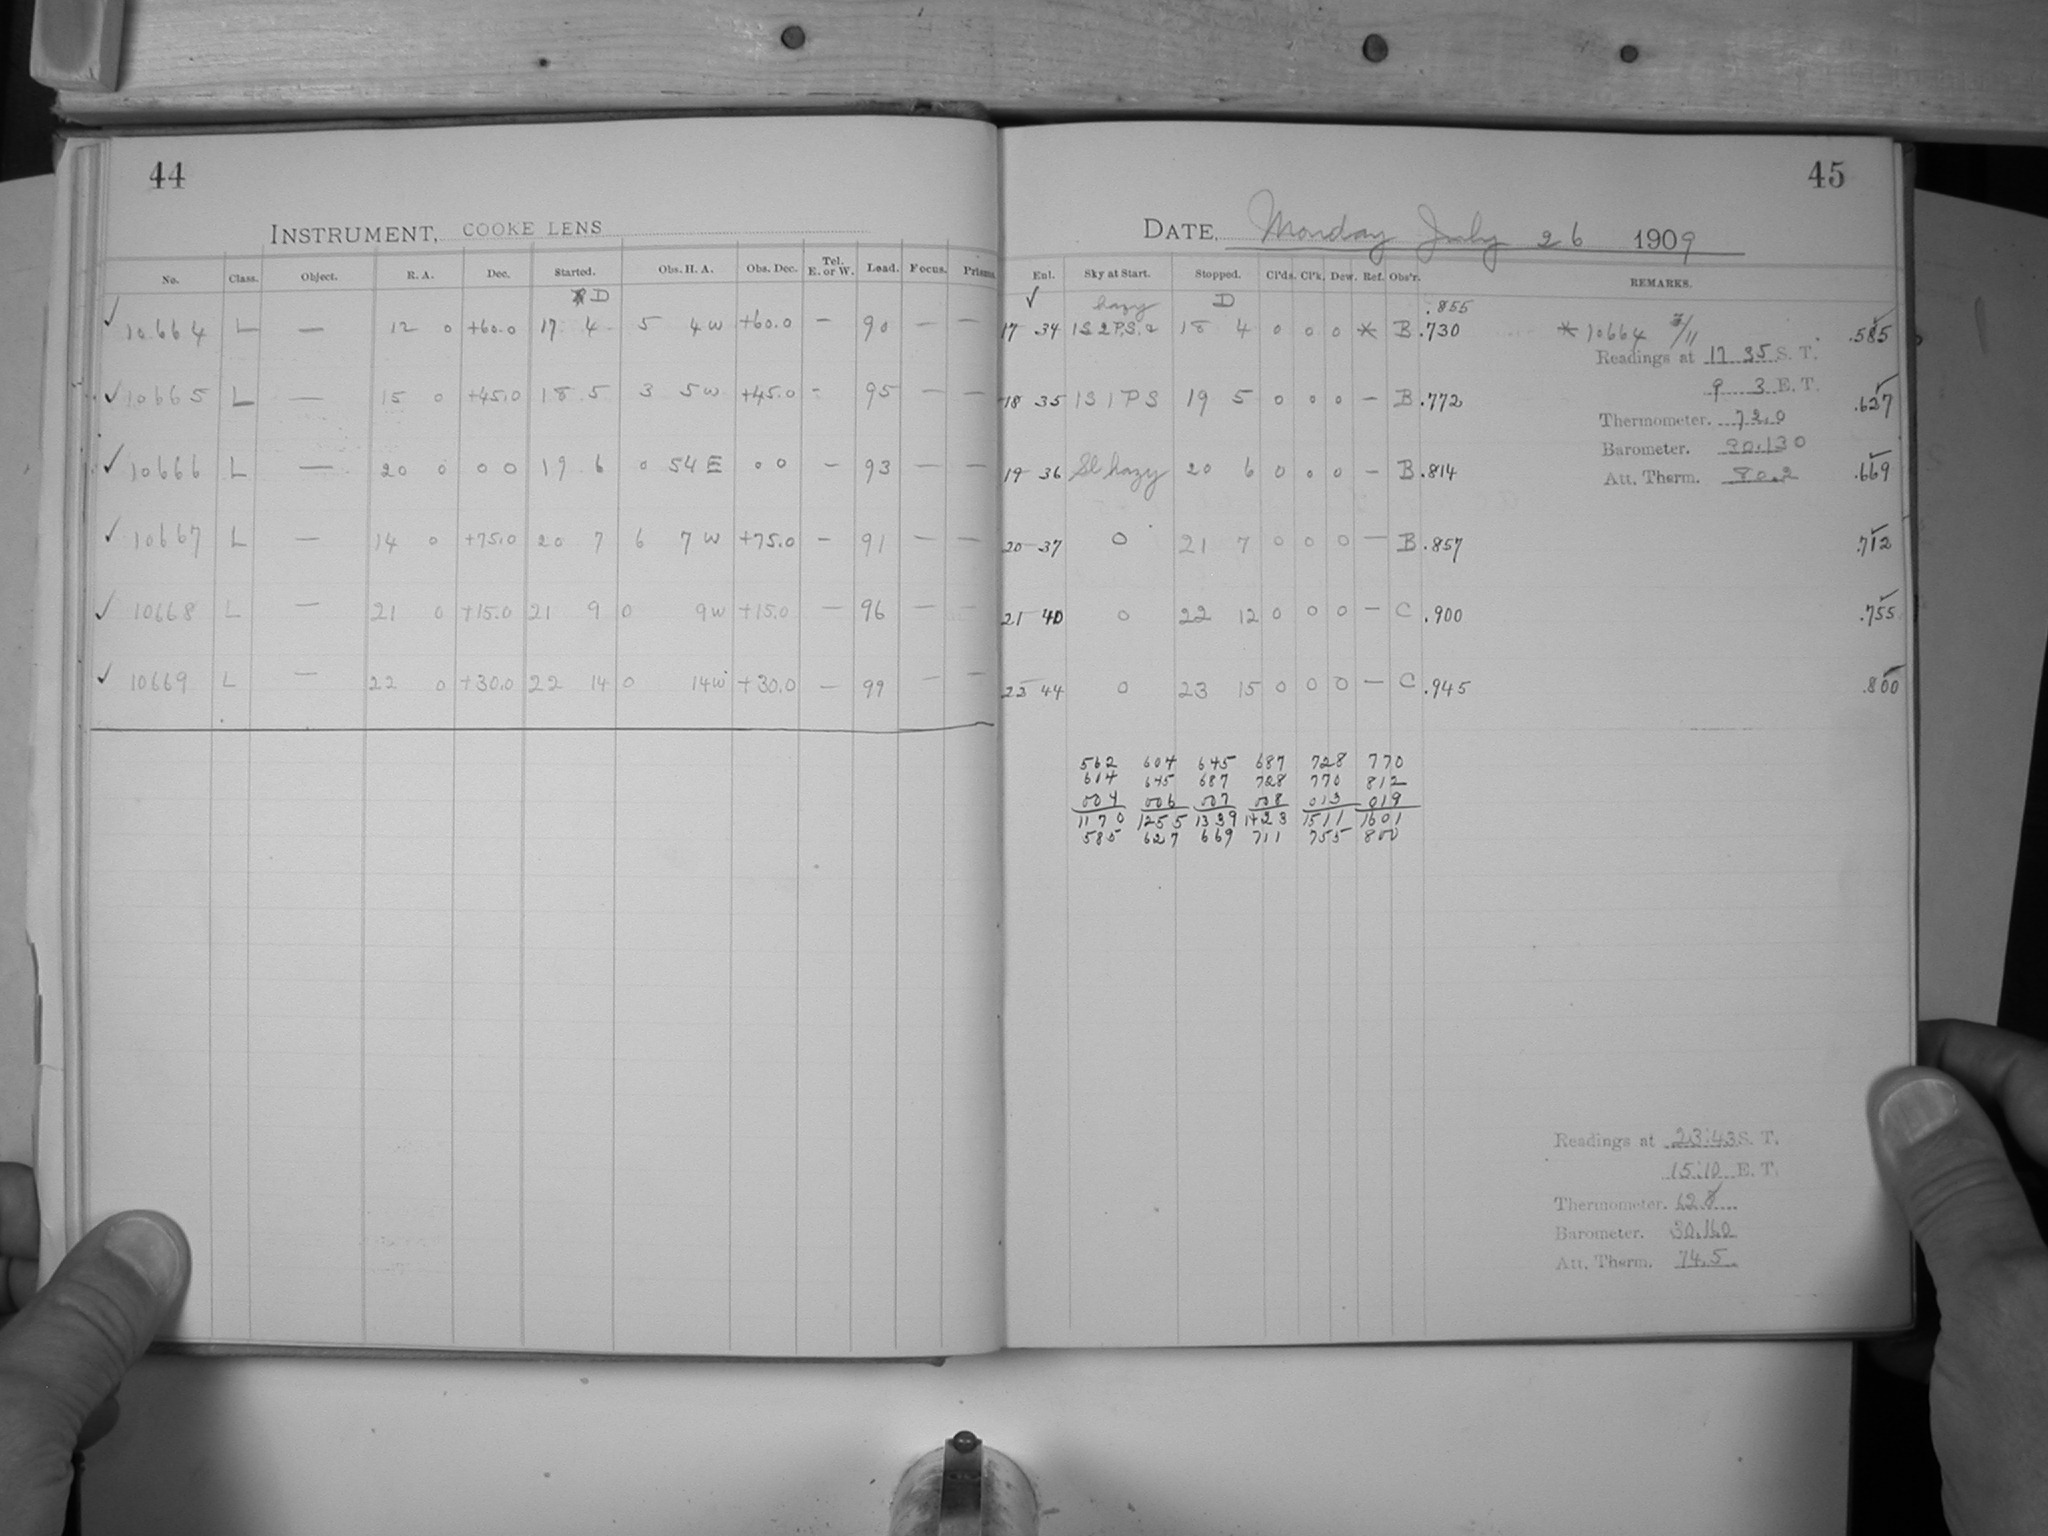 44
INSTRUMENT, COOKE LENS
No. Class. Object. R. A. Dec. Started. Obs. H. A. Obs. Dec. Tel. E. or W. Lead. Focus. Prisms
D
✓ 10664 L — 12 0 +60.0 17 4 5 4 W +60.0 — 90 — —
✓ 10665 L — 15 0 +45.0 18 5 3 5 W +45.0 — 95 — —
✓ 10666 L — 20 0 0 0 19 6 0 54 E 0 0 — 93 — —
✓ 10667 L — 14 0 +75.0 20 7 6 7 W +75.0 — 91 — —
✓ 10668 L — 21 0 +15.0 21 9 0 9 W +15.0 — 96 — —
✓ 10669 L — 22 0 +30.0 22 14 0 14 W +30.0 — 99 — —
45
DATE, Monday July 26 1909
Enl. Sky at Start. Stopped. Cl'ds. Cl'k. Dew. Ref. Obs'r. REMARKS.
✓ hazy D .855
17 34 1S 2P.S. 18 4 0 0 0 * B .730 * 10664 .585
18 35 1S 1PS 19 5 0 0 0 — B .772 .627
19 36 Sl hazy 20 6 0 0 0 — B .814 .669
20 37 0 21 7 0 0 0 — B .857 .712
21 40 0 22 12 0 0 0 — C .900 .755
22 44 0 23 15 0 0 0 — C .945 .800
Readings at 17 35 S. T.
9 3 E. T.
Thermometer. 72.0
Barometer. 30.130
Att. Therm. 80.2
562 604 645 687 728 770
614 645 687 728 770 812
004 006 007 008 013 019
1170 1255 1339 1423 1511 1601
585 627 669 711 755 800
Readings at 23:43 S. T.
15:10 E. T.
Thermometer. 62.8
Barometer. 30.160
Att. Therm. 74.5